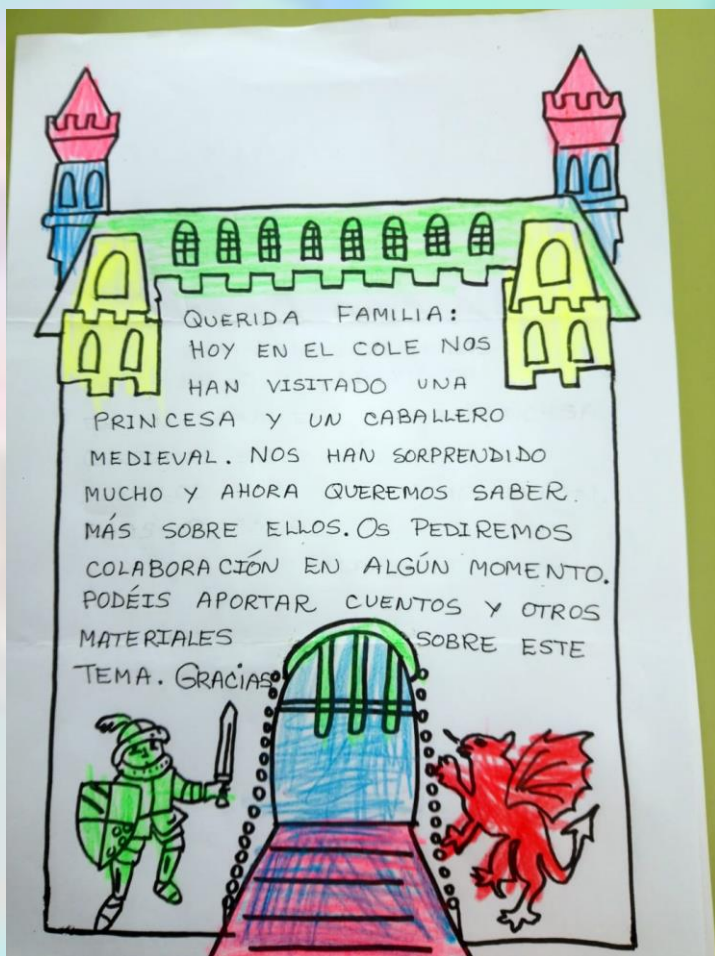 QUERIDA FAMILIA:
HOY EN EL COLE NOS
HAN VISITADO UNA
PRINCESA Y UN CABALLERO
MEDIEVAL. NOS HAN SORPRENDIDO
MUCHO Y AHORA QUEREMOS SABER
MÁS SOBRE ELLOS. OS PEDIREMOS
COLABORACIÓN EN ALGÚN MOMENTO.
PODÉIS APORTAR CUENTOS Y OTROS
MATERIALES SOBRE ESTE
TEMA. GRACIAS